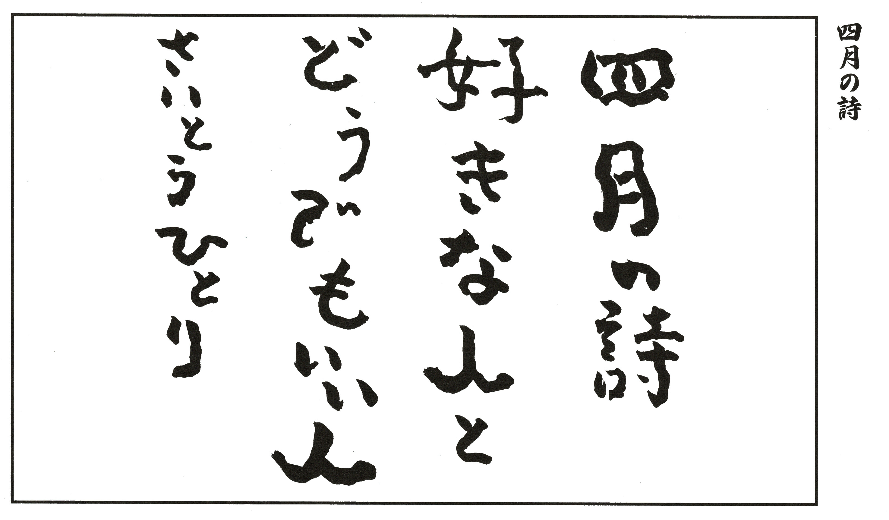 四月の詩
四月の詩
好きな人と
どうでもいい人
さいとうひとり